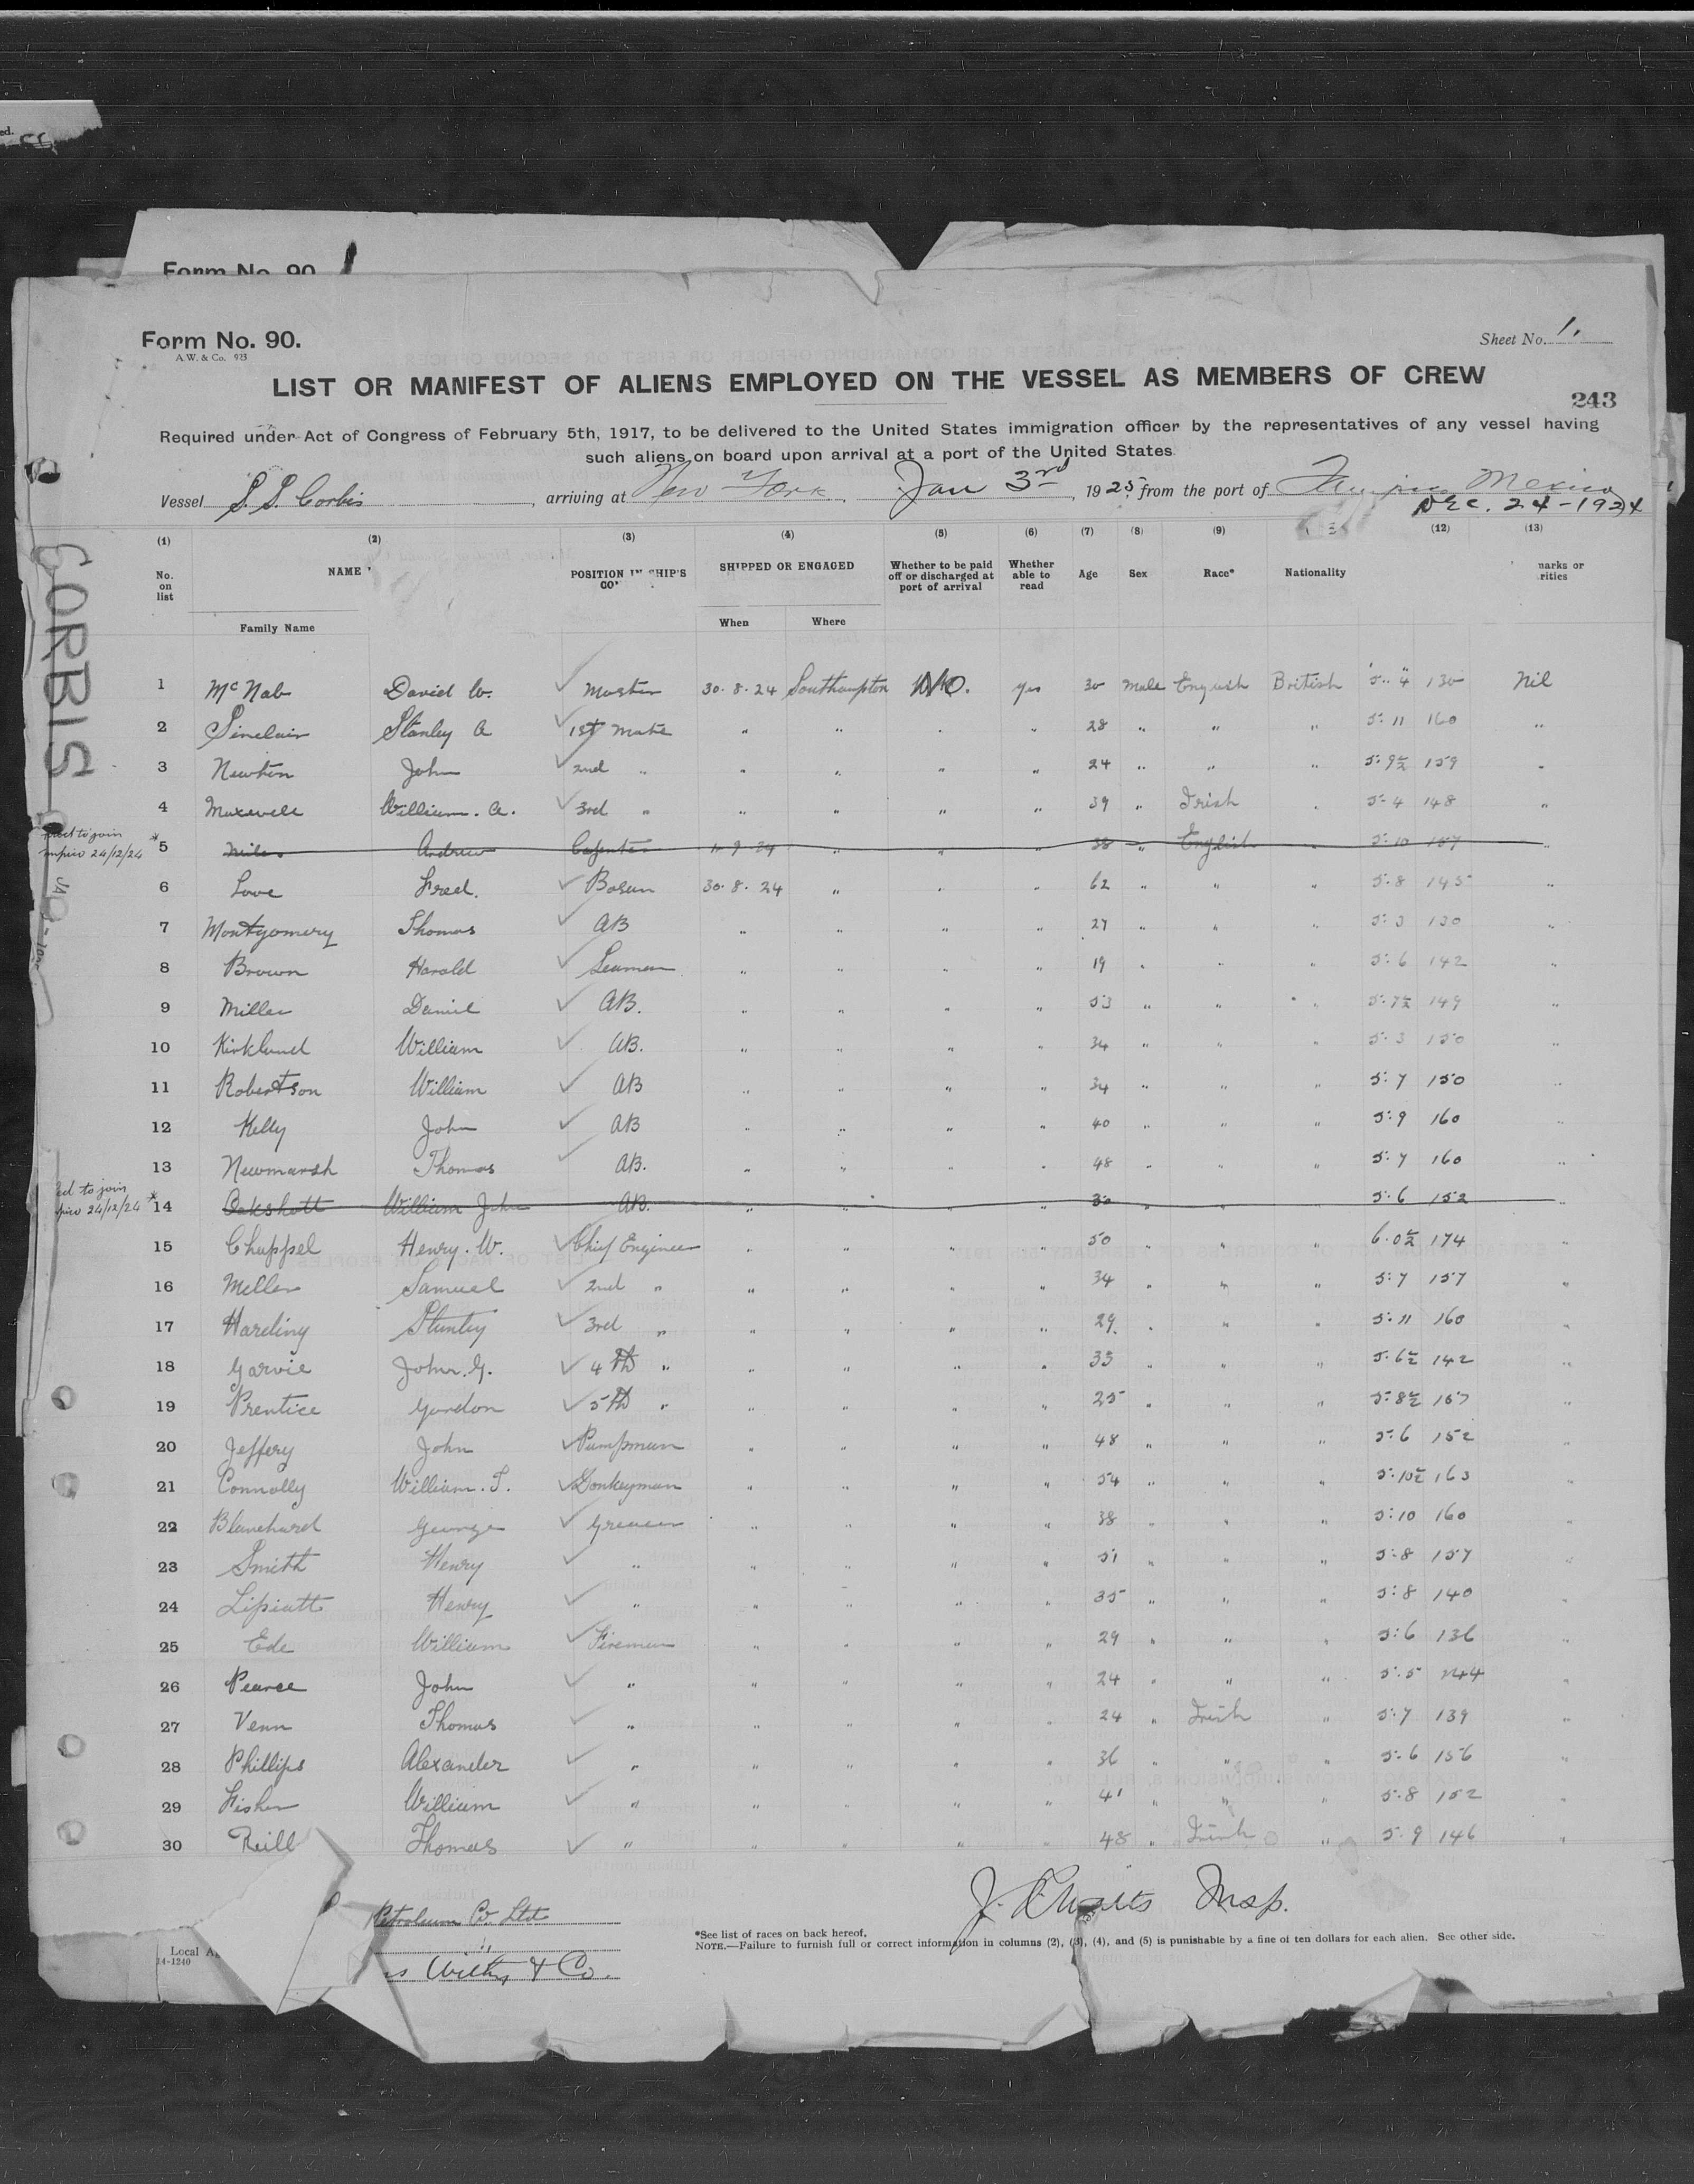 ed.
Form No. 90
Form No. 90.
A.W. & Co. 923
Sheet No. 1.
LIST OR MANIFEST OF ALIENS EMPLOYED ON THE VESSEL AS MEMBERS OF CREW
243
Required under Act of Congress of February 5th, 1917, to be delivered to the United States immigration officer by the representatives of any vessel having
such aliens on board upon arrival at a port of the United States
Vessel S.S. Corbis, arriving at New York Jan 3rd, 1925, from the port of Tampico Mexico
DEC. 24-1924
CORBIS
(1) (2) (3) (4) (5) (6) (7) (8) (9) (12) (13)
No. on list NAME POSITION IN SHIP'S CO SHIPPED OR ENGAGED Whether to be paid off or discharged at port of arrival Whether able to read Age Sex Race* Nationality marks or rities
Family Name When Where
1 McNab David W. Master 30.8.24 Southampton NO. yes 30 Male English British 5' 4" 130 Nil
2 Sinclair Stanley A 1st Mate " " . " 28 " " " 5: 11 160 "
3 Newton John 2nd " " " " " 24 " " " 5: 9½ 159 "
4 Maxwell William. A. 3rd " " " " " 39 " Irish " 5-4 148 "
ed to join
mpico 24/12/24
*5 Andrew Carpenter " " " 38 " English " 5:10 157 "
6 Love Fred. Bosun 30.8.24 " " " 62 " " " 5.8 145 "
7 Montgomery Thomas AB " " " " 27 " " " 5: 3 130 "
8 Brown Harold Seaman " " " " 19 " " " 5: 6 142 "
9 Miller Daniel AB. " " " " 53 " " " 5:7½ 149 "
10 Kirkland William AB. " " " " 34 " " " 5.3 150 "
11 Robertson William AB " " " " 34 " " " 5: 7 150 "
12 Kelly John AB " " " " 40 " " " 5:9 160 "
13 Newmarsh Thomas AB. " " " " 48 " " " 5.7 160 "
ed to join
pico 24/12/24
*14 Oakshott William John AB. " " " 30 " 5.6 152 "
15 Chappel Henry. W. Chief Engineer " " " " 50 " " " 6.0½ 174 "
16 Meller Samuel 2nd " " " " " 34 " " " 5:7 157 "
17 Harding Stanley 3rd " " " " " 29. " " " 5:11 160 "
18 Garvie John. G. 4th " " " " " 33 " " " 5.6½ 142 "
19 Prentice Gordon 5th " " " " " 25 " " " 5:8½ 157 "
20 Jeffery John Pumpman " " " " 48 " " " 5:6 152 "
21 Connolly William. T. Donkeyman " " " " 54 " " " 5:10½ 163 "
22 Blanchard George Greaser " " " " 38 " " " 5:10 160 "
23 Smith Henry " " " " " 51 " " " 5:8 157 "
24 Lipiatt Henry " " " " " 35 " " " 5:8 140 "
25 Ede William Fireman " " " " 29 " " " 5:6 136 "
26 Pearce John " " " " " 24 " " " 5:5 144 "
27 Venn Thomas " " " " " 24 " Irish " 5:7 139 "
28 Phillips Alexander " " " " " 36 " " " 5-6 156 "
29 Fisher William " " " " " 41 " " " 5.8 152 "
30 Reill Thomas " " " " " 48 " Irish " 5.9 146 "
Petroleum Co. Ltd
Insp.
*See list of races on back hereof.
NOTE.—Failure to furnish full or correct information in columns (2), (3), (4), and (5) is punishable by a fine of ten dollars for each alien. See other side.
Local A
14-1240
& Co.